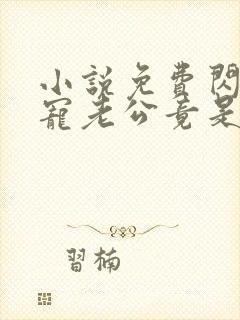 小說免費閃
寵老公竟是
習楠